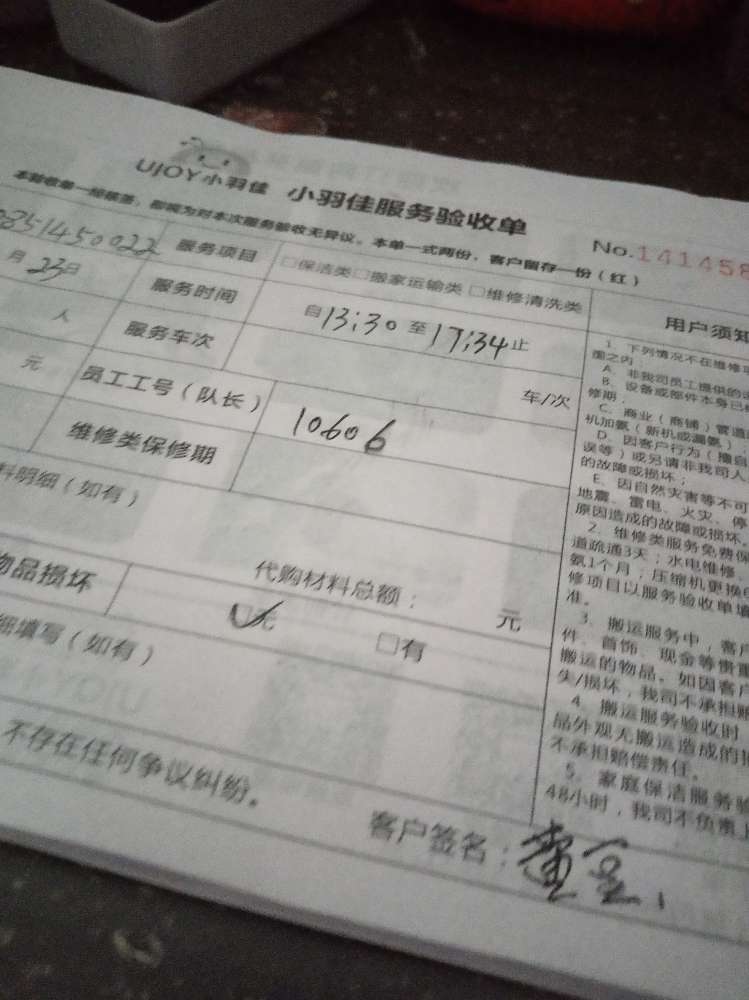 UJOY小羽佳 小羽佳服务验收单
No.141458
本验收单一经签署，即视为对本次服务验收无异议。本单一式两份，客户留存一份（红）
0351450022 服务项目 □保洁类□搬家运输类 □维修清洗类
月23日 服务时间 自13:30至17:34止
人 服务车次 车/次
元 员工工号（队长） 10606
维修类保修期
料明细（如有）
代购材料总额： 元
物品损坏 ☑无 □有
细填写（如有）
不存在任何争议纠纷。
客户签名：
用户须知
1、下列情况不在维修
围之内：
A、非我司员工提供的
B、设备或部件本身已
修期；
C、商业（商铺）管道
机加氨（新机或漏氨）；
D、因客户行为（擅自
误等）或另请非我司人
的故障或损坏；
E、因自然灾害等不可
地震、雷电、火灾、停
原因造成的故障或损坏。
2、维修类服务免费保
道疏通3天；水电维修、
氨1个月；压缩机更换
修项目以服务验收单填
准。
3、搬运服务中，客户
件、首饰、现金等贵重
搬运的物品。如因客户
失/损坏，我司不承担赔
4、搬运服务验收时
品外观无搬运造成的损
不承担赔偿责任。
5、家庭保洁服务验
48小时，我司不负责